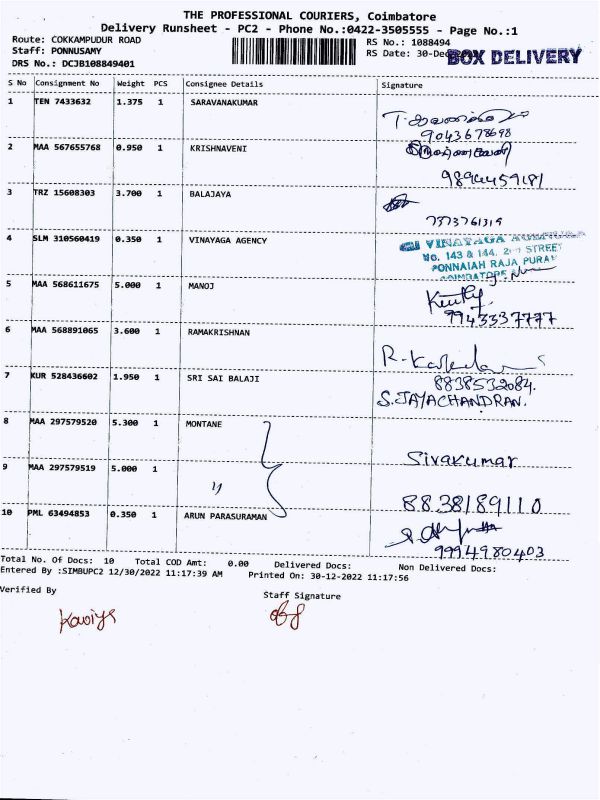 THE PROFESSIONAL COURIERS, Coimbatore
Delivery Runsheet - PC2 - Phone No.:0422-3505555 - Page No.:1
Route: COKKAMPUDUR ROAD RS No.: 1088494
Staff: PONNUSAMY RS Date: 30-Dec BOX DELIVERY
DRS No.: DCJB108849401
S No Consignment No Weight PCS Consignee Details Signature
1 TEN 7433632 1.375 1 SARAVANAKUMAR
9043678698
2 MAA 567655768 0.950 1 KRISHNAVENI
9894459181
3 TRZ 15608303 3.700 1 BALAJAYA
7373761319
4 SLM 310560419 0.350 1 VINAYAGA AGENCY
VINAYAGA
No. 143 & 144, 2nd STREET
PONNAIAH RAJA PURAM
COIMBATORE
5 MAA 568611675 5.000 1 MANOJ
9943337777
6 MAA 568891065 3.600 1 RAMAKRISHNAN
7 KUR 528436602 1.950 1 SRI SAI BALAJI
8838532084.
S.JAYACHANDRAN.
8 MAA 297579520 5.300 1 MONTANE
Sivakumar
9 MAA 297579519 5.000 1 "
8838189110
10 PML 63494853 0.350 1 ARUN PARASURAMAN
9994980403
Total No. Of Docs: 10 Total COD Amt: 0.00 Delivered Docs: Non Delivered Docs:
Entered By :SIMBUPC2 12/30/2022 11:17:39 AM Printed On: 30-12-2022 11:17:56
Verified By Staff Signature
Kaviya